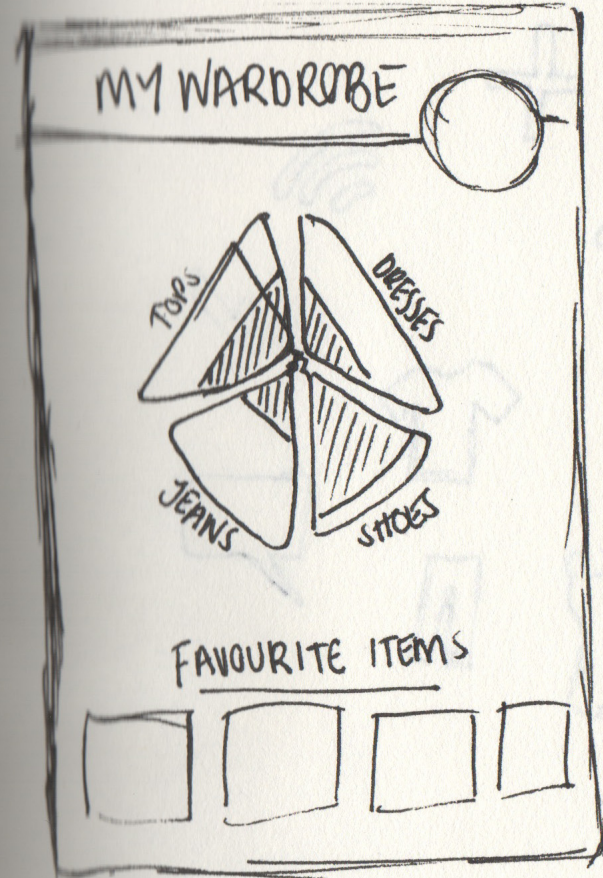 MY WARDROBE
TOPS
DRESSES
JEANS
SHOES
FAVOURITE ITEMS